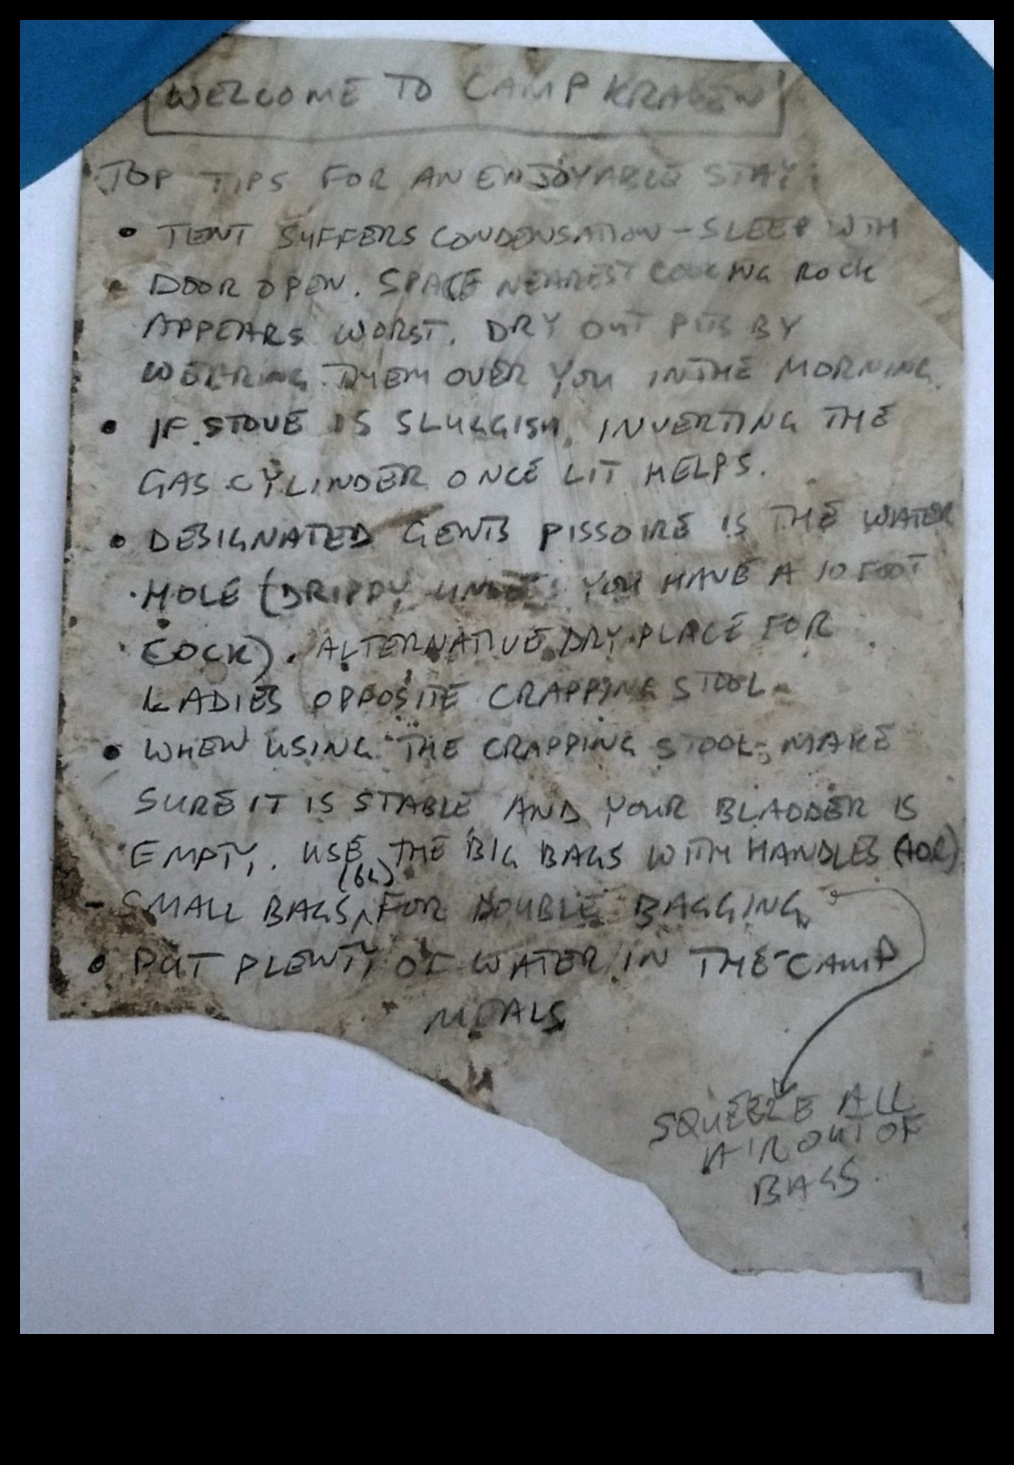 WELCOME TO CAMP KRAKEN!
TOP TIPS FOR AN ENJOYABLE STAY:
• TENT SUFFERS CONDENSATION - SLEEP WITH
DOOR OPEN. SPACE NEAREST COOKING ROCK
APPEARS WORST. DRY OUT PITS BY
WEARING THEM OVER YOU IN THE MORNING.
• IF STOVE IS SLUGGISH, INVERTING THE
GAS CYLINDER ONCE LIT HELPS.
• DESIGNATED GENTS PISSOIRE IS THE WATER
HOLE (DRIPPY UNLESS YOU HAVE A 10 FOOT
COCK). ALTERNATIVE DRY PLACE FOR
LADIES OPPOSITE CRAPPING STOOL.
• WHEN USING THE CRAPPING STOOL, MAKE
SURE IT IS STABLE AND YOUR BLADDER IS
EMPTY. USE THE BIG BAGS WITH HANDLES
(6L)
- SMALL BAGS FOR DOUBLE BAGGING
• PUT PLENTY OF WATER IN THE CAMP
MEALS
SQUEEZE ALL
AIR OUT OF
BAGS.